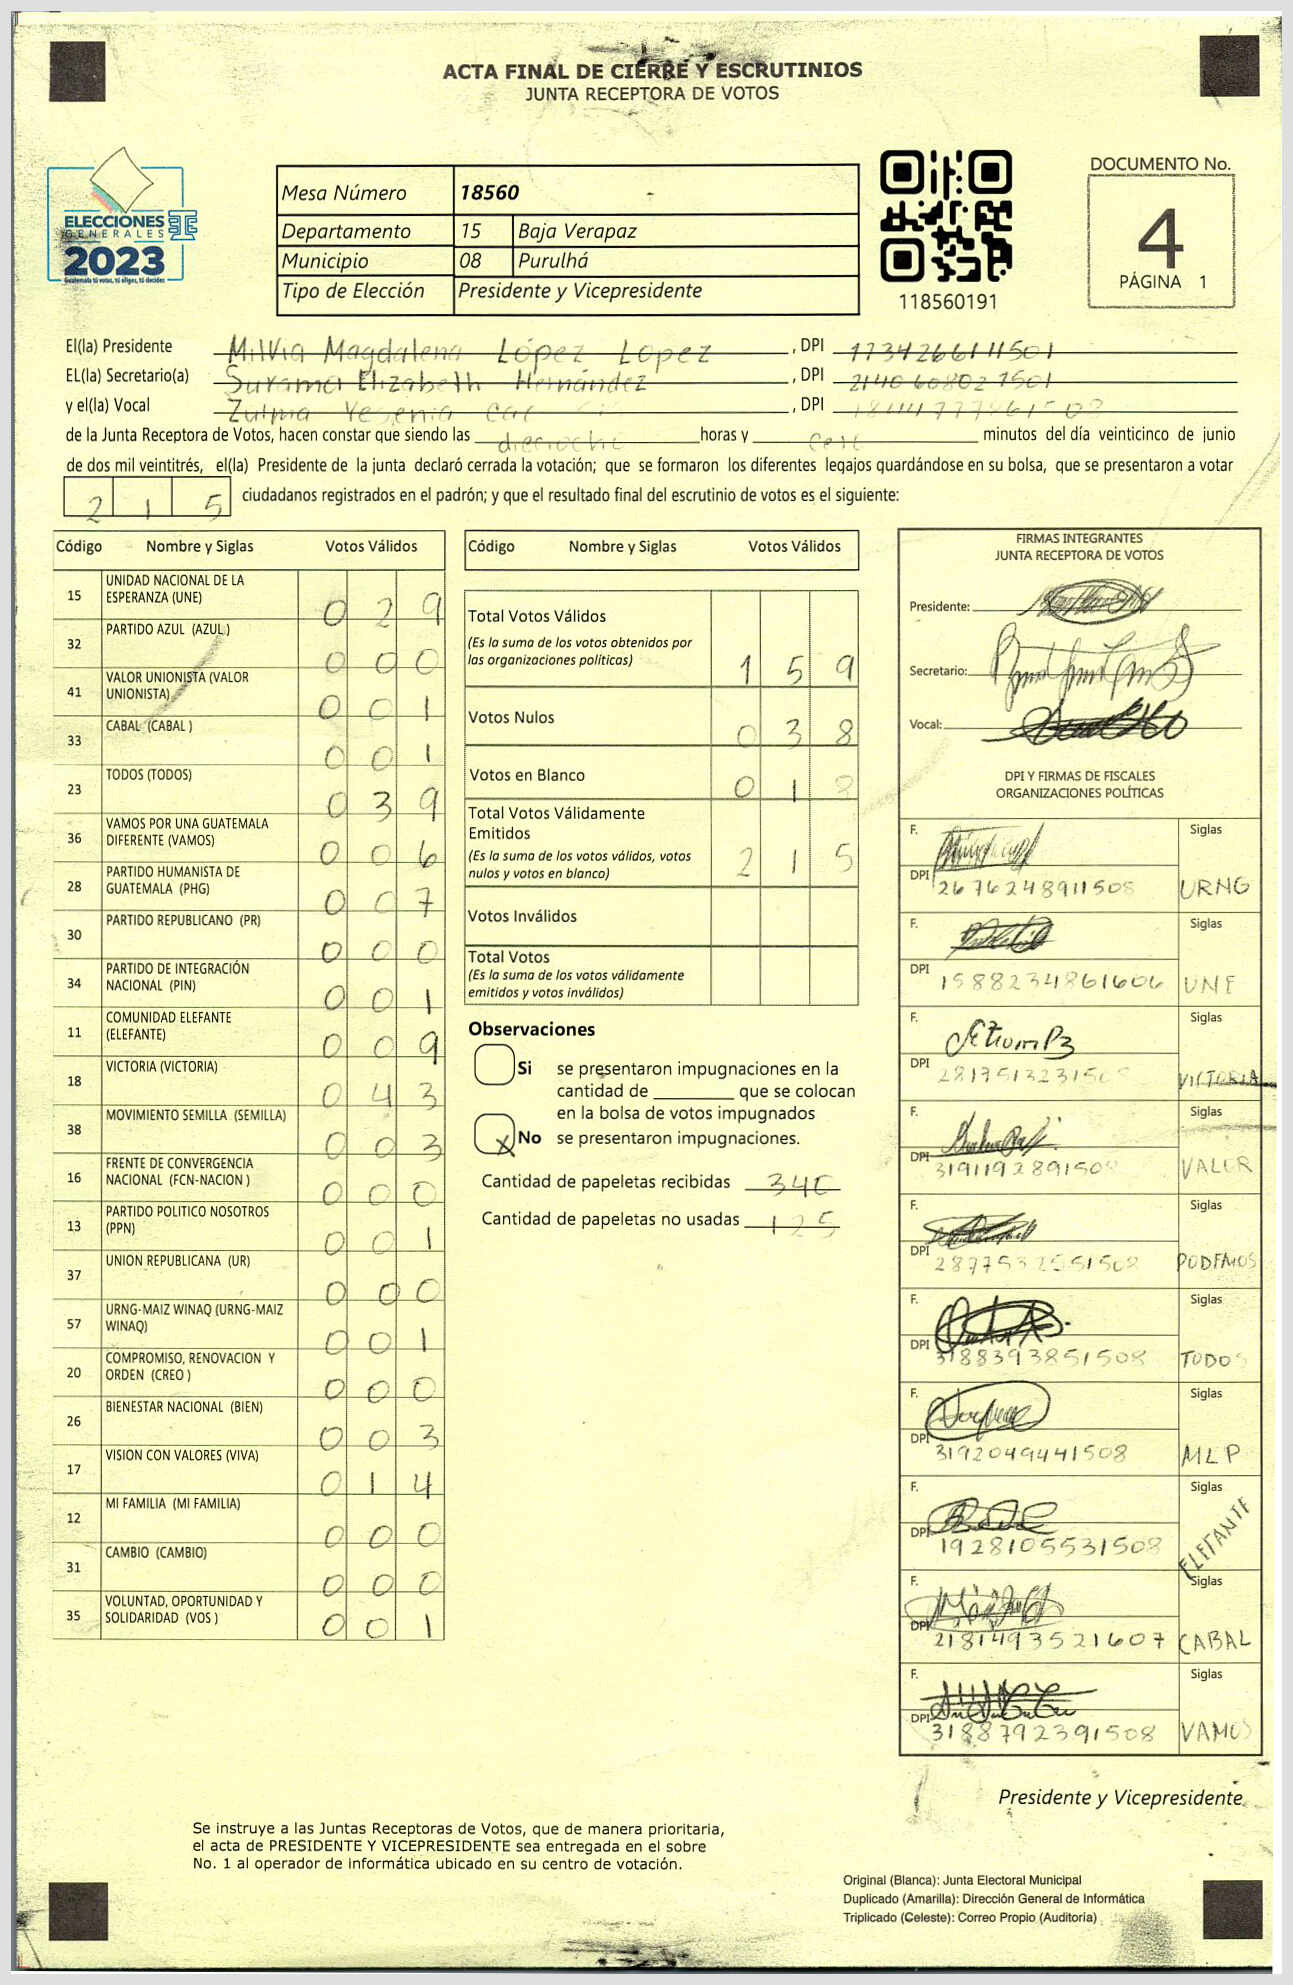 ACTA FINAL DE CIERRE Y ESCRUTINIOS
JUNTA RECEPTORA DE VOTOS
ELECCIONES
GENERALES
2023
Guatemala tú votas, tú eliges, tú decides
Mesa Número 18560
Departamento 15 Baja Verapaz
Municipio 08 Purulhá
Tipo de Elección Presidente y Vicepresidente
118560191
DOCUMENTO No.
4
PÁGINA 1
El(la) Presidente Milvia Magdalena López Lopez , DPI 1734266111501
EL(la) Secretario(a) Surama Elizabeth Hernández , DPI 2140608021501
y el(la) Vocal Zulma Yesenia Cac , DPI
de la Junta Receptora de Votos, hacen constar que siendo las dieciocho horas y cero minutos del día veinticinco de junio
de dos mil veintitrés, el(la) Presidente de la junta declaró cerrada la votación; que se formaron los diferentes legajos guardándose en su bolsa, que se presentaron a votar
2 1 5 ciudadanos registrados en el padrón; y que el resultado final del escrutinio de votos es el siguiente:
Código Nombre y Siglas Votos Válidos
15 UNIDAD NACIONAL DE LA ESPERANZA (UNE) 0 2 9
32 PARTIDO AZUL (AZUL) 0 0 0
41 VALOR UNIONISTA (VALOR UNIONISTA) 0 0 1
33 CABAL (CABAL ) 0 0 1
23 TODOS (TODOS) 0 3 9
36 VAMOS POR UNA GUATEMALA DIFERENTE (VAMOS) 0 0 6
28 PARTIDO HUMANISTA DE GUATEMALA (PHG) 0 0 7
30 PARTIDO REPUBLICANO (PR) 0 0 0
34 PARTIDO DE INTEGRACIÓN NACIONAL (PIN) 0 0 1
11 COMUNIDAD ELEFANTE (ELEFANTE) 0 0 9
18 VICTORIA (VICTORIA) 0 4 3
38 MOVIMIENTO SEMILLA (SEMILLA) 0 0 3
16 FRENTE DE CONVERGENCIA NACIONAL (FCN-NACION ) 0 0 0
13 PARTIDO POLITICO NOSOTROS (PPN) 0 0 1
37 UNION REPUBLICANA (UR) 0 0 0
57 URNG-MAIZ WINAQ (URNG-MAIZ WINAQ) 0 0 1
20 COMPROMISO, RENOVACION Y ORDEN (CREO ) 0 0 0
26 BIENESTAR NACIONAL (BIEN) 0 0 3
17 VISION CON VALORES (VIVA) 0 1 4
12 MI FAMILIA (MI FAMILIA) 0 0 0
31 CAMBIO (CAMBIO) 0 0 0
35 VOLUNTAD, OPORTUNIDAD Y SOLIDARIDAD (VOS ) 0 0 1
Código Nombre y Siglas Votos Válidos
Total Votos Válidos
(Es la suma de los votos obtenidos por
las organizaciones políticas) 1 5 9
Votos Nulos 0 3 8
Votos en Blanco 0 1
Total Votos Válidamente
Emitidos
(Es la suma de los votos válidos, votos
nulos y votos en blanco) 2 1 5
Votos Inválidos
Total Votos
(Es la suma de los votos válidamente
emitidos y votos inválidos)
Observaciones
Si se presentaron impugnaciones en la
cantidad de ________ que se colocan
en la bolsa de votos impugnados
x No se presentaron impugnaciones.
Cantidad de papeletas recibidas 340
Cantidad de papeletas no usadas 125
FIRMAS INTEGRANTES
JUNTA RECEPTORA DE VOTOS
Presidente:
Secretario:
Vocal:
DPI Y FIRMAS DE FISCALES
ORGANIZACIONES POLÍTICAS
F. Siglas
DPI 2676248911508 URNG
F. Siglas
DPI 1588234861606 UNE
F. Siglas
DPI VICTORIA
F. Siglas
DPI 3191192891508 VALOR
F. Siglas
DPI PODEMOS
F. Siglas
DPI 3188393851508 TODOS
F. Siglas
DPI 3192049441508 MLP
F. Siglas
DPI 1928105531508 ELEFANTE
F. Siglas
DPI 2181493521607 CABAL
F. Siglas
DPI 3188792391508 VAMOS
Presidente y Vicepresidente
Se instruye a las Juntas Receptoras de Votos, que de manera prioritaria,
el acta de PRESIDENTE Y VICEPRESIDENTE sea entregada en el sobre
No. 1 al operador de informática ubicado en su centro de votación.
Original (Blanca): Junta Electoral Municipal
Duplicado (Amarilla): Dirección General de Informática
Triplicado (Celeste): Correo Propio (Auditoría)